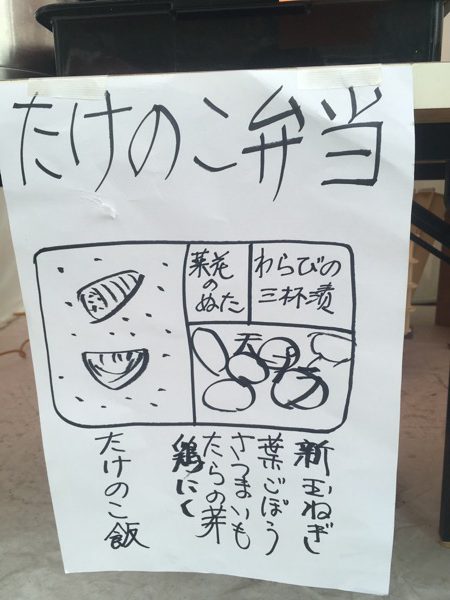 たけのこ弁当
菜花
の
ぬた
わらびの
三杯漬
天プラ
新玉ねぎ
葉ごぼう
さつまいも
たらの芽
鶏にく
たけのこ飯